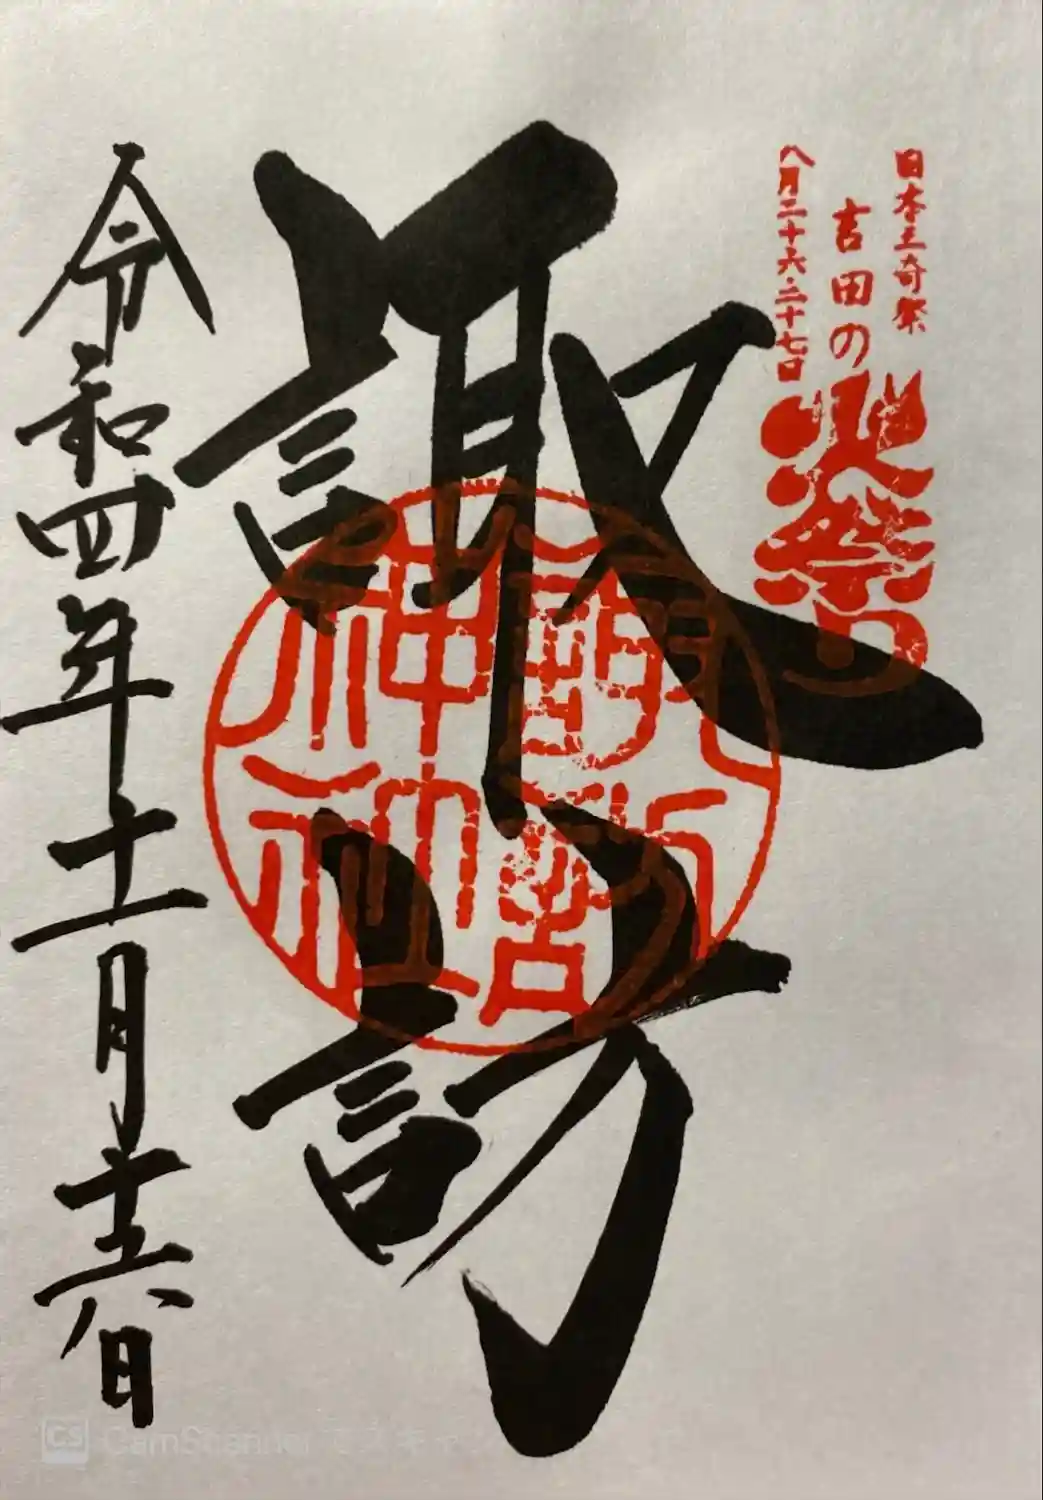 日本三奇祭
吉田の火祭り
八月二十六・二十七日
諏訪
諏訪神社
令和四年十一月十六日
CS CamScanner でスキャン